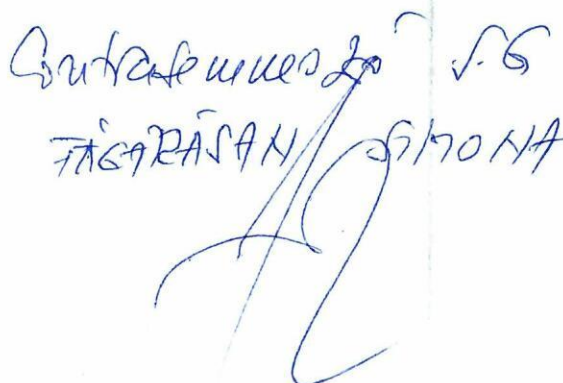 Contrasemnează S.G
FĂGĂRĂȘAN SIMONA